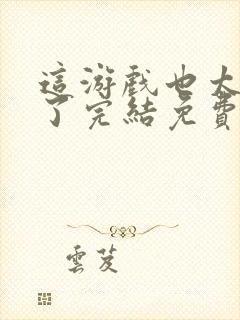 這游戲也太
了完結免費
雲芨